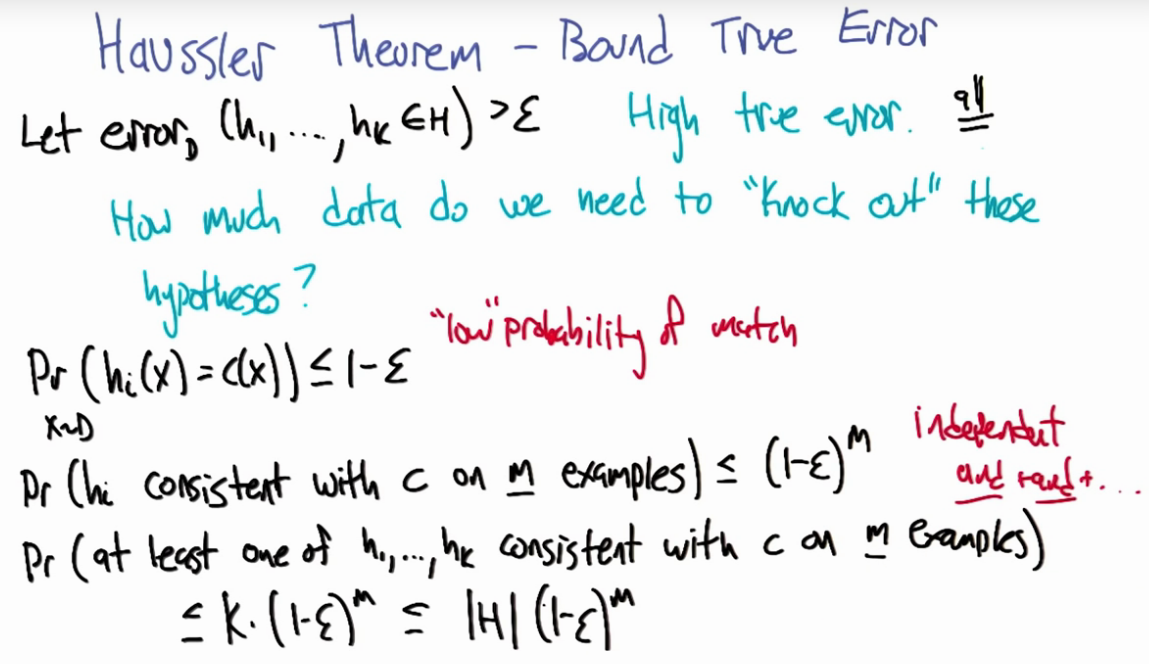 Haussler Theorem - Bound True Error
Let error_D (h_1, ..., h_k ∈ H) > ε High true error. all
How much data do we need to "knock out" these
hypotheses?
"low" probability of match
Pr (h_i(x) = c(x)) ≤ 1-ε
x~D
independent
Pr (h_i consistent with c on m examples) ≤ (1-ε)^m
and and + ...
Pr (at least one of h_1, ..., h_k consistent with c on m examples)
≤ k · (1-ε)^m ≤ |H| (1-ε)^m